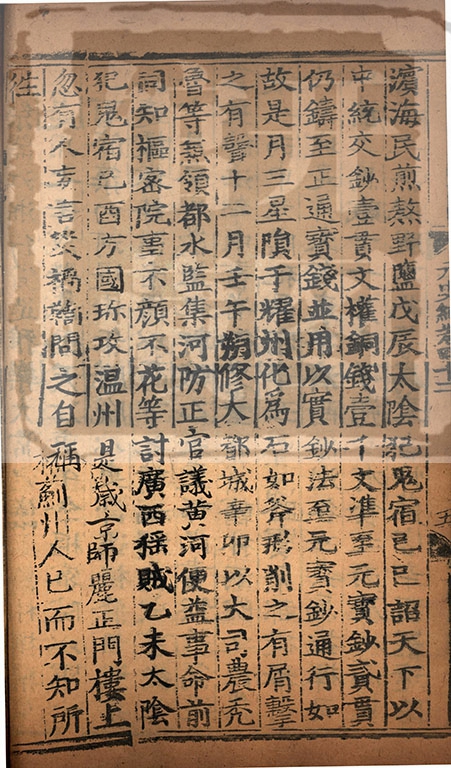 濵海民煎熬野鹽戊辰太陰犯鬼宿己巳詔天下以
中統交鈔壹貫文權銅錢壹千文準至元寳鈔貳貫
仍鑄至正通寳錢並用以實鈔法至元寳鈔通行如
故是月三星隕于耀州化爲石如斧形削之有屑擊
之有聲十二月壬午朔修大都城辛卯以大司農禿
魯等兼領都水監集河防正官議黄河便益事命前
同知樞密院事不顔不花等討廣西猺賊乙未太陰
犯鬼宿己酉方國珎攻温州是歲京師麗正門樓上
忽有人妄言災禍鞫問之自稱薊州人已而不知所
徃